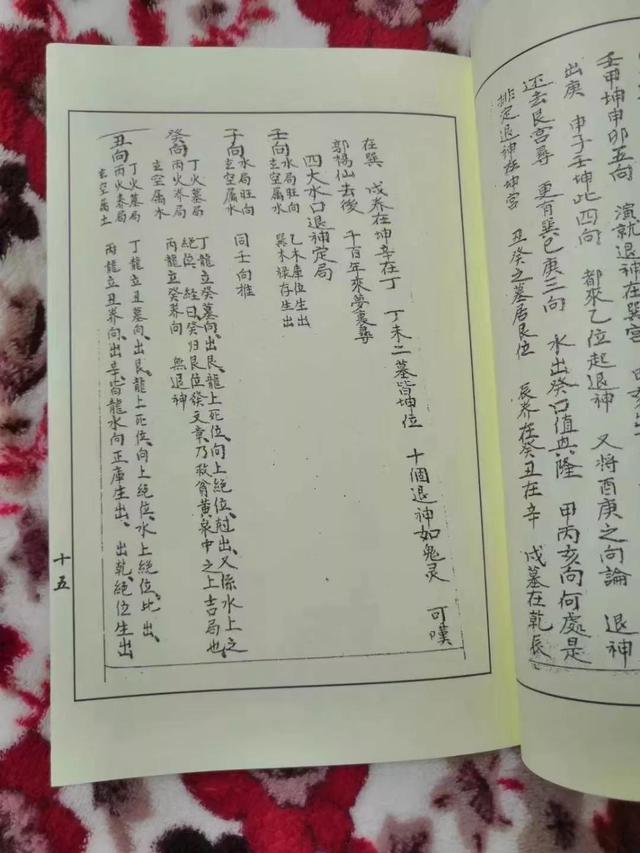 壬甲坤申卯五向 演就退神在巽宮
出庚 申子壬坤此四向 都來乙位起退神 又將酉庚之向論 退神
还去艮宮尋 更有巽巳庚三向 水出癸口值興隆 甲丙亥向何處是
排定退神在坤宮 丑癸之墓居艮位 辰养在癸丑在辛 戌墓在乾辰
在巽 戌养在坤辛在丁 丁未二墓皆坤位 十個退神如鬼灵 可嘆
郭楊仙去後 千百年來夢裏尋
四大水口退神定局
壬向 水局旺向 乙木库位生出
玄空属水 巽木禄存生出
子向 水局旺向 同壬向推
玄空属水
癸向 丁火墓局 丁龍立癸墓向、出艮、龍上死位、向上絕位、尅出、又係水上之
絕位、經曰、癸归艮位發文章、乃救貧黄泉中之上吉局也、
丙火养局 丙龍立癸养向 無退神
玄空属水
丑向 丁火墓局 丁龍立丑墓向、出艮、龍上死位、向上絕位、水上絕位、比出、
丙火养局 丙龍立丑养向、出辛、皆龍水向正庫生出、 出乾、絕位生出
玄空属土
十五